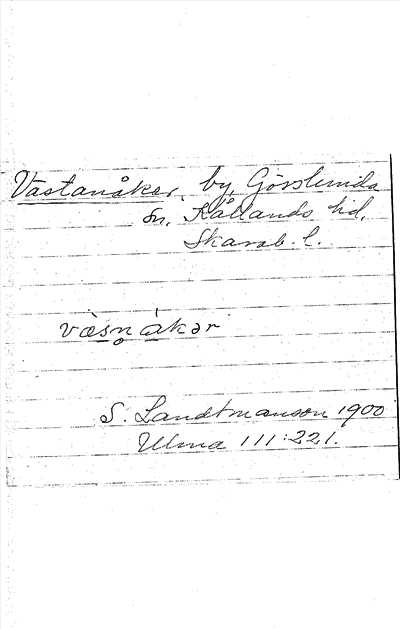 Västanåker, by, Görslunda
sn, Kållands hd,
Skarab. l.
væ̀sn̥ åkər
S. Landtmanson 1900
Ulma 111:22,1.